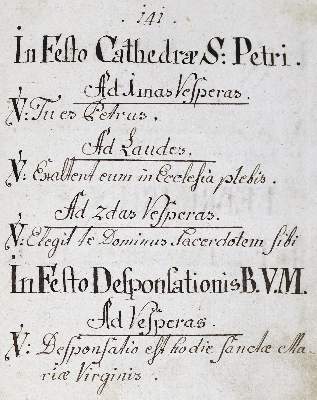 . 141 .
In Festo Cathedræ S: Petri.
Ad Imas Vesperas.
V: Tu es Petrus.
Ad Laudes.
V: Exaltent eum in Ecclesia plebis.
Ad 2das Vesperas.
V: Elegit te Dominus Sacerdotem sibi
In Festo Desponsationis B.V.M.
Ad Vesperas.
V: Desponsatio est hodie sanctæ Ma-
riæ Virginis.